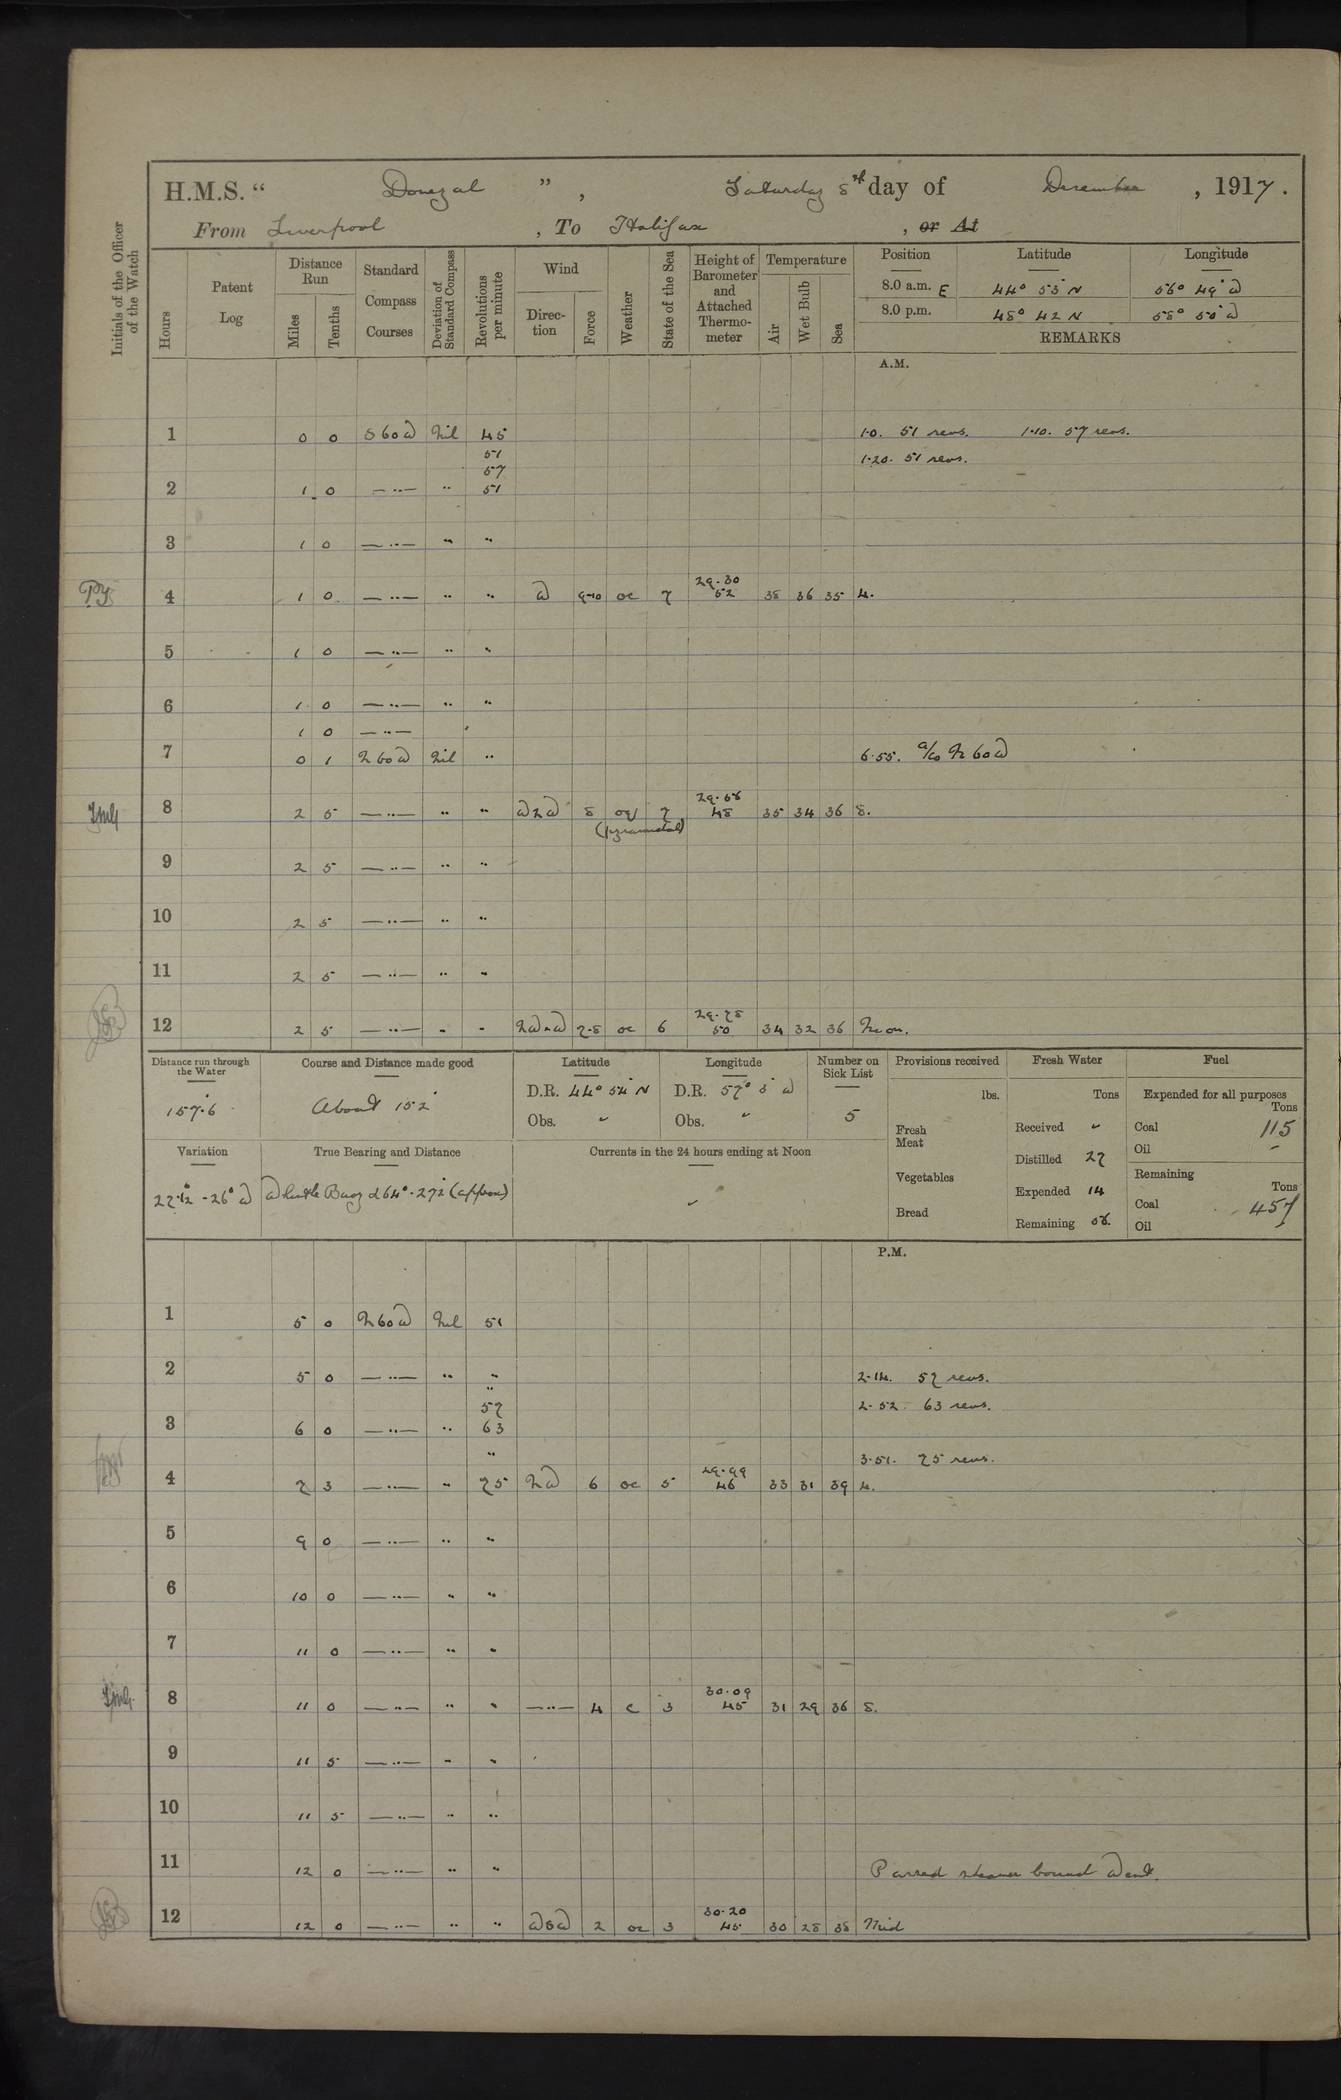 H.M.S. " Donegal ", Saturday 8th day of December, 1917.
From Liverpool, To Halifax, or At
Initials of the Officer of the Watch
Hours
Patent Log
Distance Run
Miles Tenths
Standard Compass Courses
Deviation of Standard Compass
Revolutions per minute
Wind
Direction Force
Weather
State of the Sea
Height of Barometer and Attached Thermometer
Temperature
Air Wet Bulb Sea
Position Latitude Longitude
8.0 a.m. E 44° 55' N 56° 49' W
8.0 p.m. 45° 42 N 58° 50' W
REMARKS
A.M.
1 0 0 S 60 W Nil 45 1.0. 51 revs. 1.10. 57 revs.
51 1.20. 51 revs.
57
2 1 0 — ·· — ·· 51
3 1 0 — ·· — ·· ··
29.30
4 1 0 — ·· — ·· ·· W 9-10 oc 7 52 38 36 35 4.
5 1 0 — ·· — ·· ··
6 1 0 — ·· — ·· ··
1 0 — ·· —
7 0 1 N 60 W Nil ·· 6.55. a/co N 60 W
29.56
8 2 5 — ·· — ·· ·· WNW 8 oq 7 48 35 34 36 8.
(pyramidal)
9 2 5 — ·· — ·· ··
10 2 5 — ·· — ·· ··
11 2 5 — ·· — ·· ··
29.78
12 2 5 — ·· — ·· ·· NW-W 7-8 oc 6 50 34 32 36 Noon.
Distance run through the Water
157.6
Course and Distance made good
About 152'
Latitude
D.R. 44° 54' N
Obs. "
Longitude
D.R. 57° 5' W
Obs. "
Number on Sick List
5
Provisions received
lbs.
Fresh Meat
Vegetables
Bread
Fresh Water
Tons
Received "
Distilled 27
Expended 14
Remaining 58.
Fuel
Expended for all purposes
Tons
Coal 115
Oil -
Remaining
Tons
Coal 457
Oil
Variation
True Bearing and Distance
Whistle Buoy
(approx)
Currents in the 24 hours ending at Noon
P.M.
1 5 0 N 60 W Nil 51
2 5 0 — ·· — ·· ·· 2.14. 57 revs.
··
57 2.52. 63 revs.
3 6 0 — ·· — ·· 63
·· 3.51. 75 revs.
29.99
4 7 3 — ·· — ·· 75 NW 6 oc 5 46 33 31 39 4.
5 9 0 — ·· — ·· ··
6 10 0 — ·· — ·· ··
7 11 0 — ·· — ·· ··
30.09
8 11 0 — ·· — ·· ·· — ·· — 4 c 3 45 31 29 36 8.
9 11 5 — ·· — ·· ··
10 11 5 — ·· — ·· ··
11 12 0 — ·· — ·· ·· Passed steamer bound West.
30.20
12 12 0 — ·· — ·· ·· WSW 2 oc 3 45 30 28 38 Mid